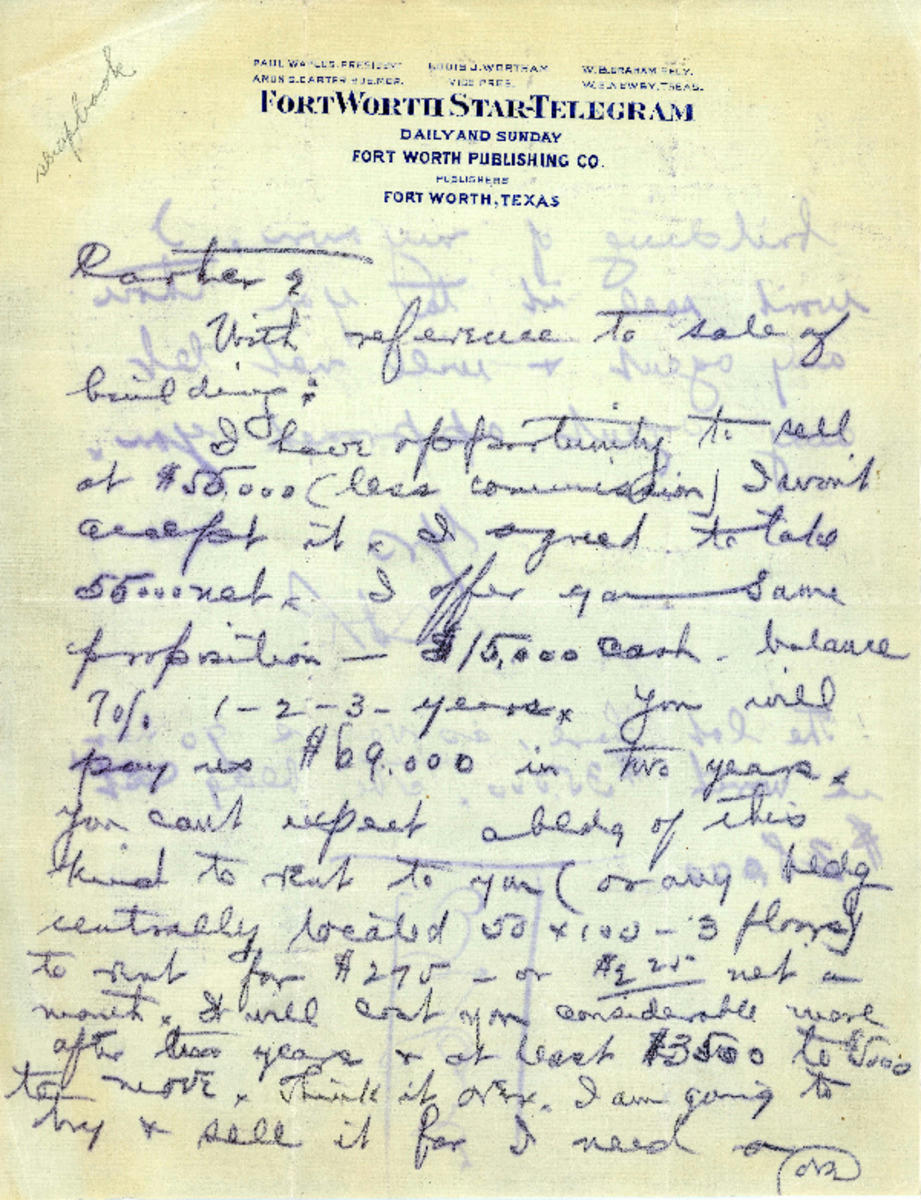 scrapbook
PAUL WAPLES, PRESIDENT LOUIS J. WORTHAM W. B. GRAHAM SECY.
AMON G. CARTER BUS. MGR. VICE PRES. W. C. NEWBY, TREAS.
FORT WORTH STAR-TELEGRAM
DAILY AND SUNDAY
FORT WORTH PUBLISHING CO.
PUBLISHERS
FORT WORTH, TEXAS
Carter
With reference to sale of
building:
I have opportunity to sell
at $55,000 (less commission) I won't
accept it x I agreed to take
55000 net x I offer you same
proposition — $15,000 cash - balance
7% 1-2-3- years x You will
pay us $69,000 in two years x
You cant expect a bldg of this
kind to rent to you (or any bldg
centrally located 50 x 100 - 3 floors)
to rent for $275 - or $225 net a
month x It will cost you considerable more
after two years & at least $3500 to 5000
to move x Think it over x I am going to
try & sell it for I need a